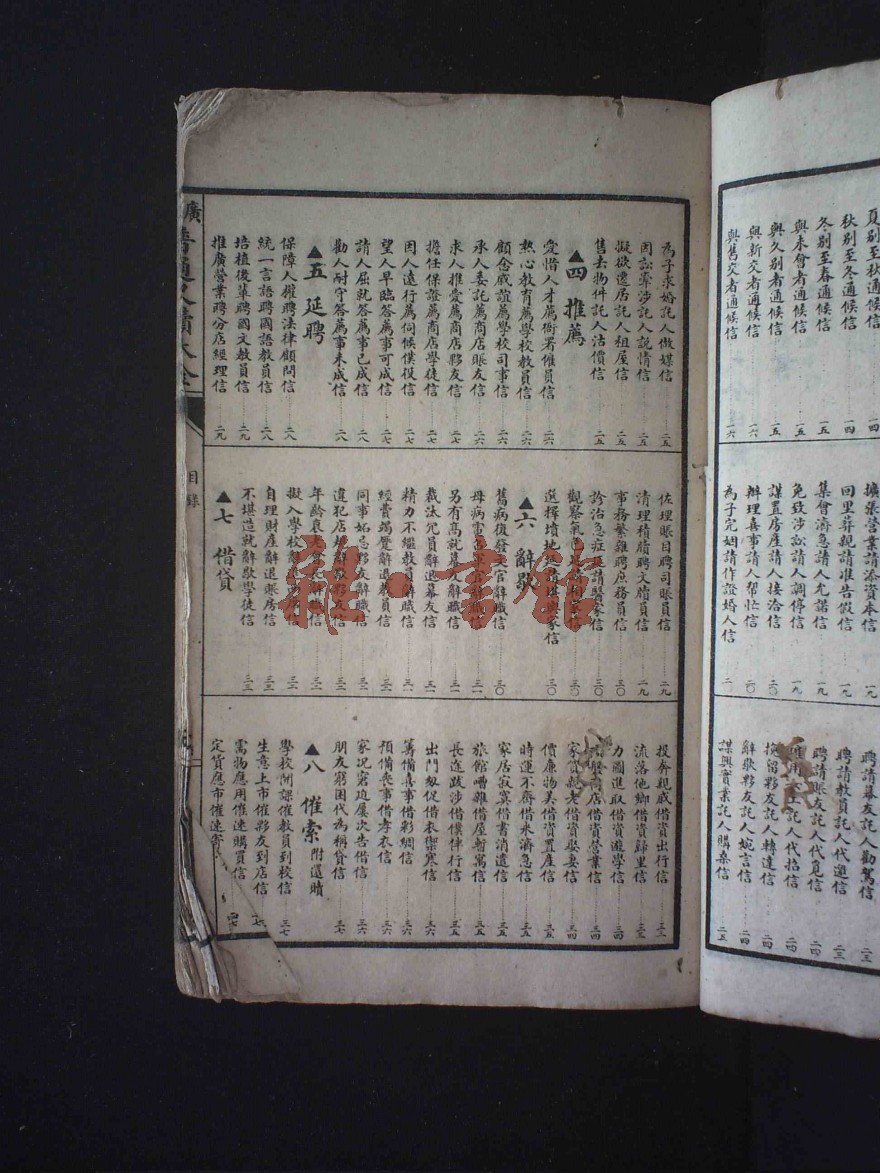 夏別至秋通候信 一四
秋別至冬通候信 一四
冬別至春通候信 一五
與未會者通候信 一五
與久別者通候信 一五
與新交者通候信 一六
與舊交者通候信 一六
擴張營業請添資本信 一九
回里葬親請准告假信 一九
集會濟急請人允諾信 一九
免致涉訟請人調停信 一九
謀置房產請人接洽信 二〇
辦理喜事請人幫忙信 二〇
為子完姻請作證婚人信
聘請幕友託人勸駕信 二三
聘請教員託人代邀信 二三
聘請賬友託人代覓信 二四
託人代拾信 二四
挽留夥友託人轉達信 二四
辭歇夥友託人婉言信 二四
謀興實業託人購桑信 二五
為子求婚託人做媒信 二五
因訟牽涉託人說情信 二五
擬欲遷居託人租屋信 二五
售去物件託人沽價信 二五
▲四 推薦
愛惜人才薦衙署僱員信 二六
熱心教育薦學校教員信 二六
顧念戚誼薦學校司事信 二六
承人委託薦商店賬友信 二六
求人推愛薦商店夥友信 二七
擔任保證薦商店學徒信 二七
因人遠行薦伺候僕役信 二七
望人早臨答薦事可成信 二七
請人屈就答薦事已成信 二八
勸人耐守答薦事未成信 二八
▲五 延聘
保障人權聘法律顧問信 二八
統一言語聘國語教員信 二八
培植後輩聘國文教員信 二九
推廣營業聘分店經理信 二九
佐理賬目聘司賬員信 二九
清理積牘聘文牘員信 二九
事務繁雜聘庶務員信 三〇
診治急症延請醫家信 三〇
觀察氣色 三〇
選擇墳地延請堪輿家信 三〇
▲六 辭歇
舊病復發 官辭職信 三〇
母病電 軍官辭職信 三一
另有高就幕友辭職信 三一
裁汰冗員辭退幕友信 三一
精力不繼教員辭職信 三一
經費竭蹙辭退教員信 三二
同事妬忌夥友辭職信 三二
違犯店規辭歇夥友信 三二
年齡衰老 辭職信 三二
擬入學校辭 信 三二
自理財產辭退賬房信 三三
不堪造就辭歇學徒信 三三
▲七 借貸
投奔親戚借資出行信 三三
流落他鄉借資歸里信 三三
力圖進取借資遊學信 三四
商店借資營業信 三四
家貧親老借資娶妻信 三四
價廉物美借資置產信 三四
時運不齊借米濟急信 三五
家居寂寞借書消遣信 三五
旅館嘈雜借屋暫寓信 三五
長途跋涉借僕伴行信 三五
出門匆促借衣禦寒信 三六
籌備喜事借彩綢信 三六
預備喪事借孝衣信 三六
家況窘迫屢次告借信 三六
朋友窮困代為稱貸信 三七
▲八 催索 附還贖
學校開課催教員到校信 三七
生意上市催夥友到店信
需物應用催速購買信
定貨應市催速寄
廣 普通尺牘大全
目錄